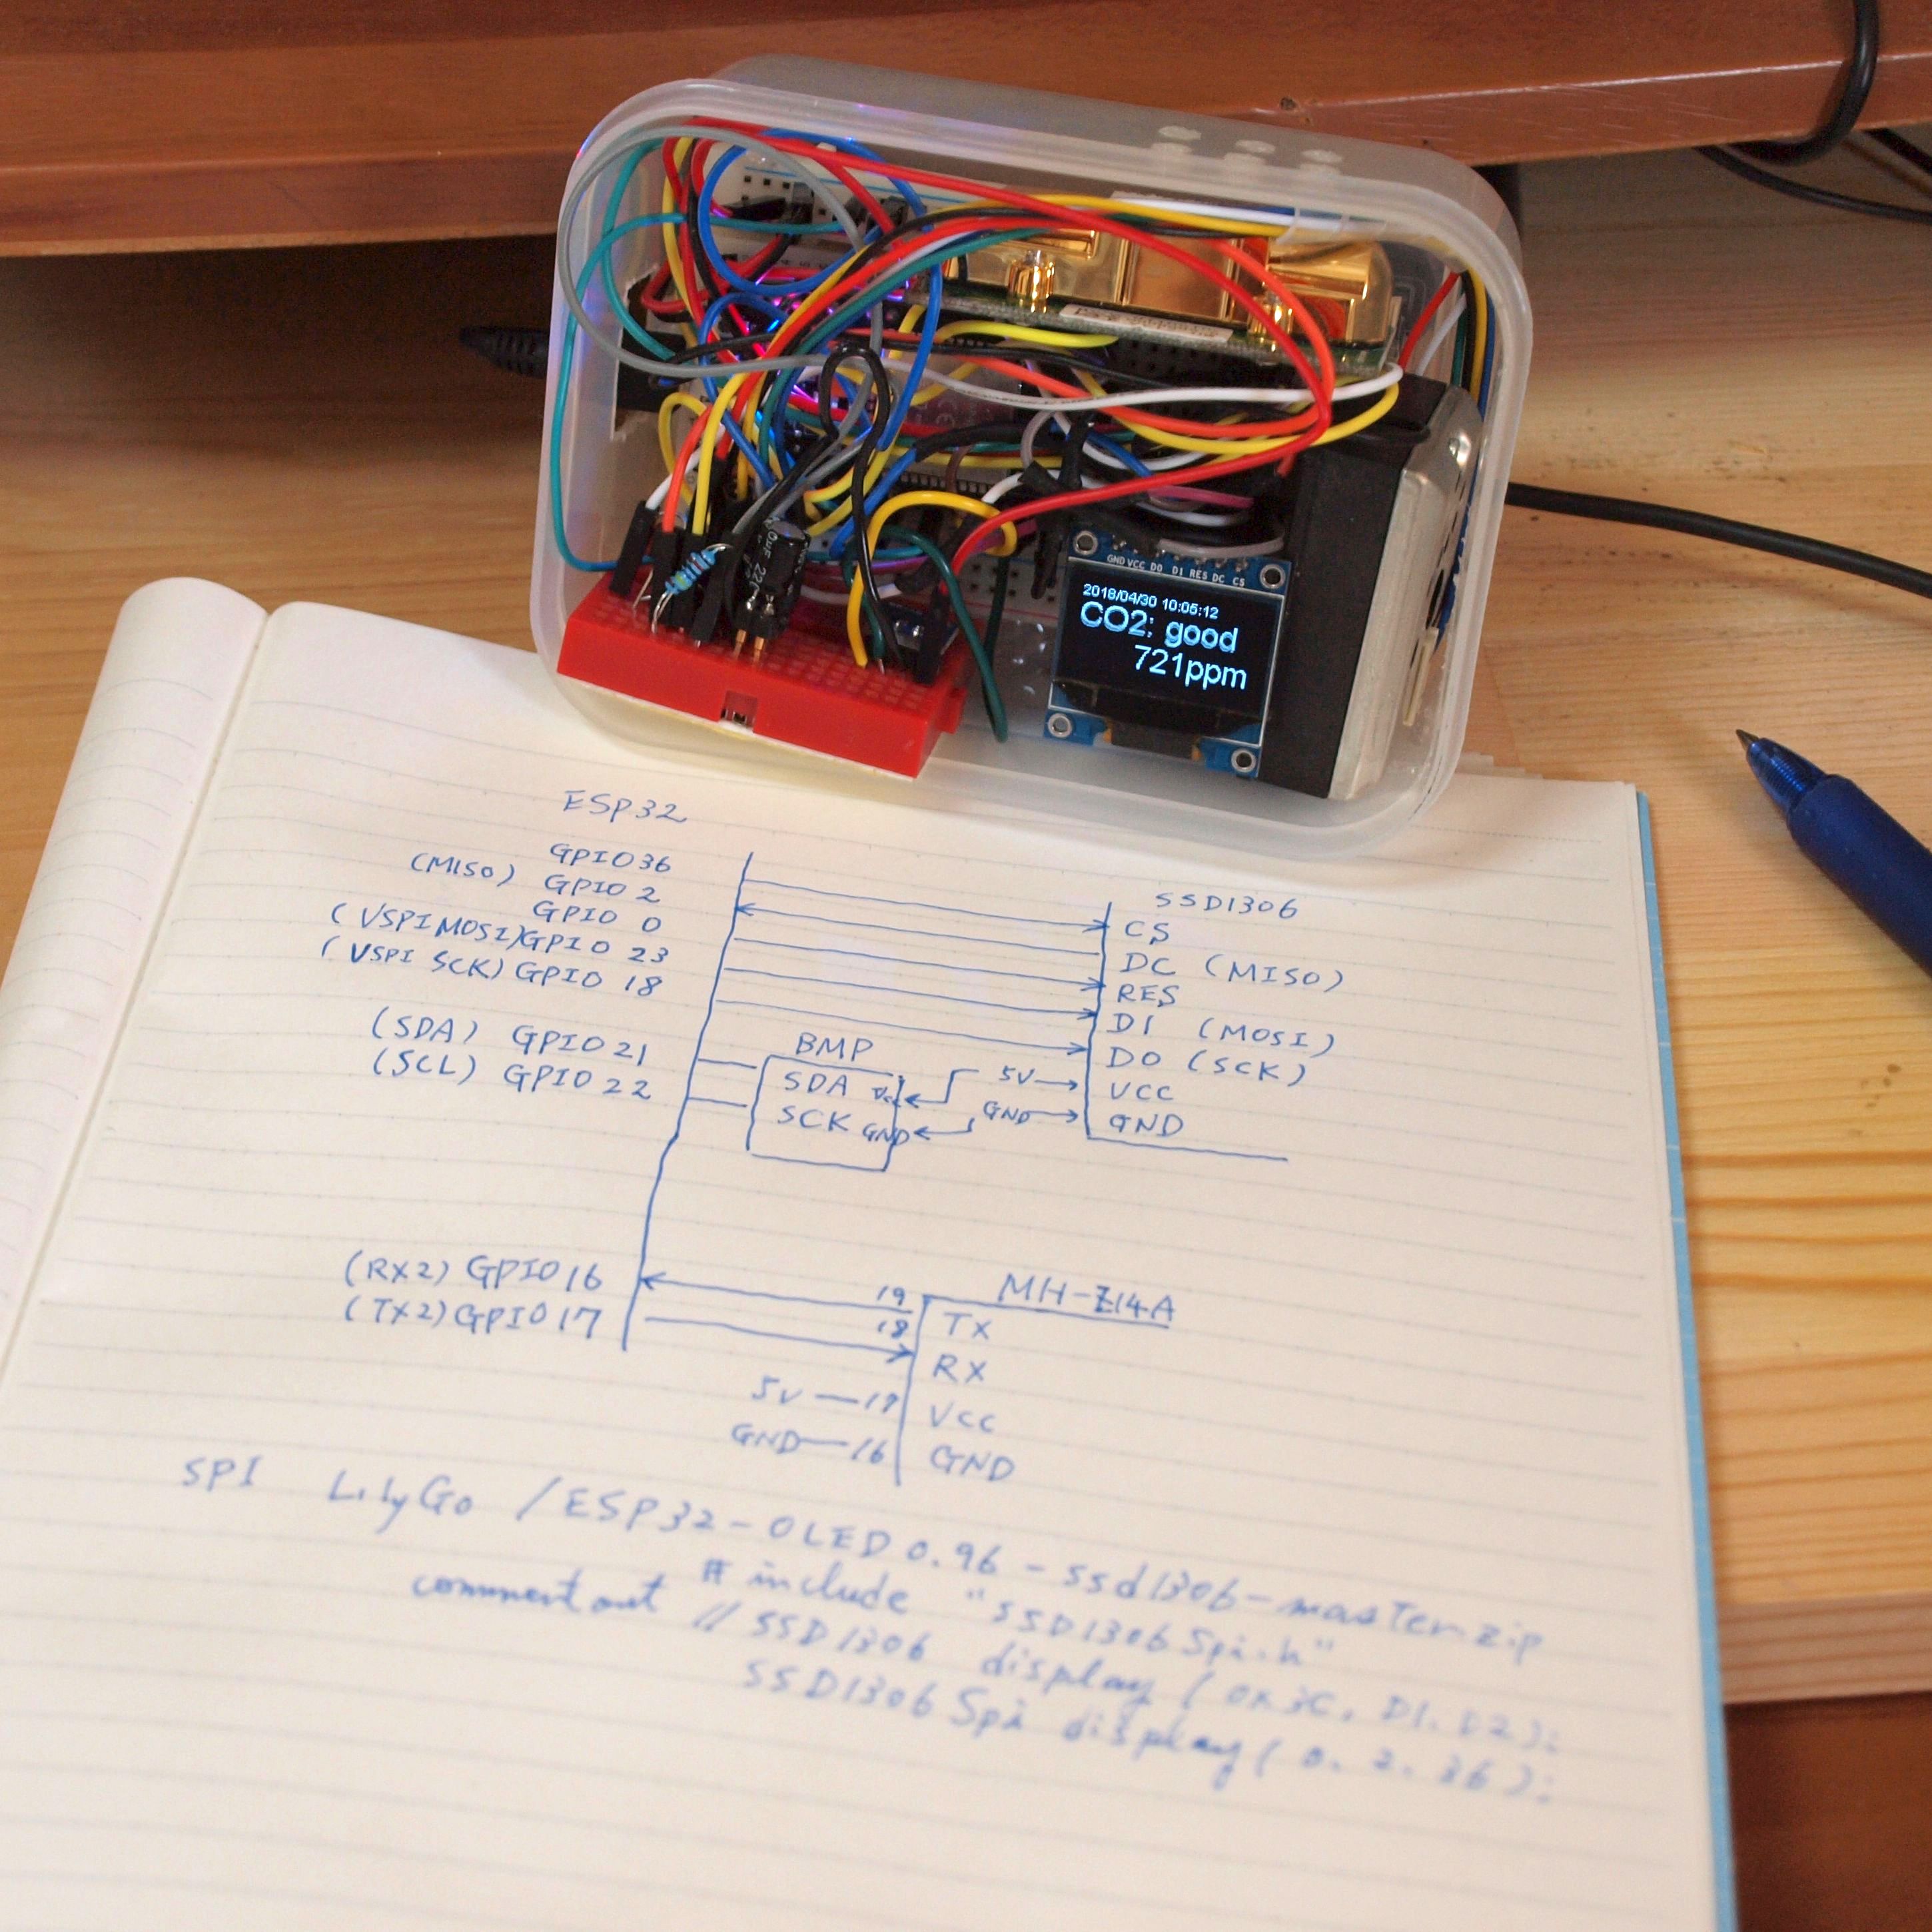 GND VCC D0 D1 RES DC CS
2018/04/30 10:05:12
CO2: good
721ppm
ESP32
GPIO36
(MISO) GPIO 2
GPIO 0
(VSPIMOSI)GPIO 23
(VSPI SCK) GPIO 18
(SDA) GPIO 21
(SCL) GPIO 22
(RX2) GPIO16
(TX2) GPIO17
SSD1306
CS
DC (MISO)
RES
D1 (MOSI)
D0 (SCK)
5V VCC
GND GND
BMP
SDA Vcc
SCK GND
MH-Z14A
19 TX
18 RX
5V 17 VCC
GND 16 GND
SPI LilyGo /ESP32-OLED0.96-ssd1306-master.zip
#include "SSD1306Spi.h"
comment out // SSD1306 display (0x3C, D1, D2);
SSD1306Spi display (0, 2, 36);